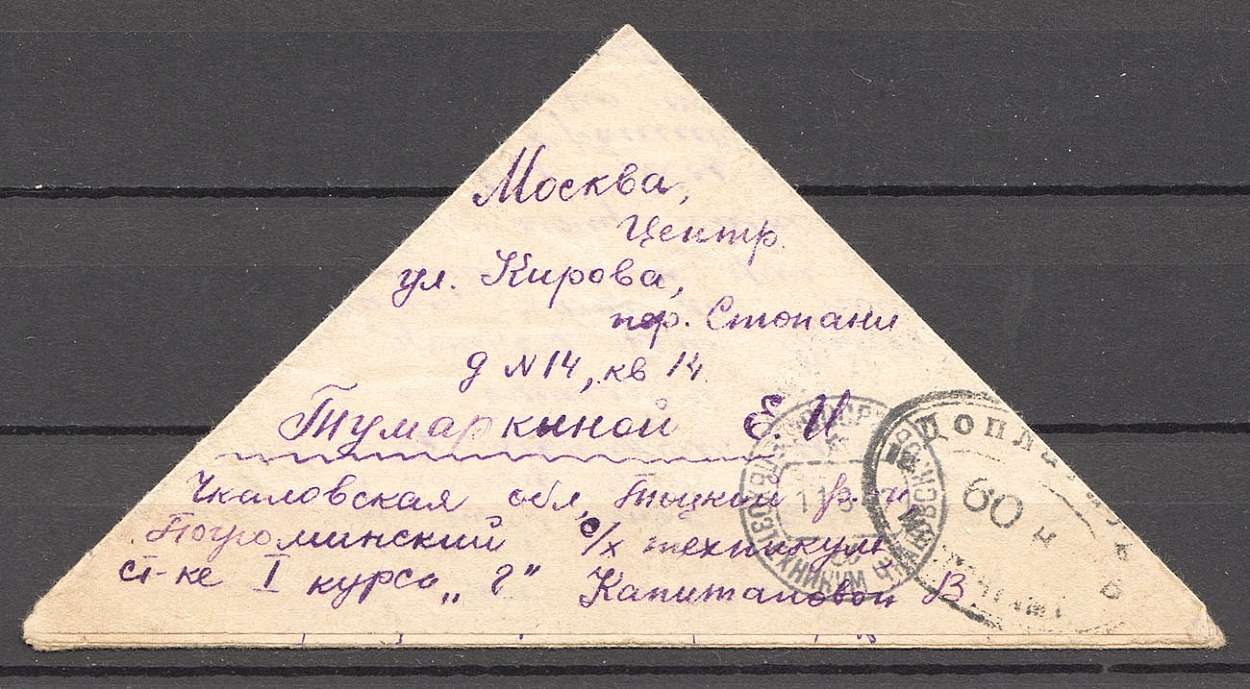 Москва,
Центр.
ул. Кирова,
пер. Стопани
д N 14, кв 14.
Тумаркиной Е. И
Чкаловская обл, Тоцкий р-он
Погроминский с/х техникум
ст-ке I курса „г" Капитановой В
ДОПЛАТИТЬ
60 к